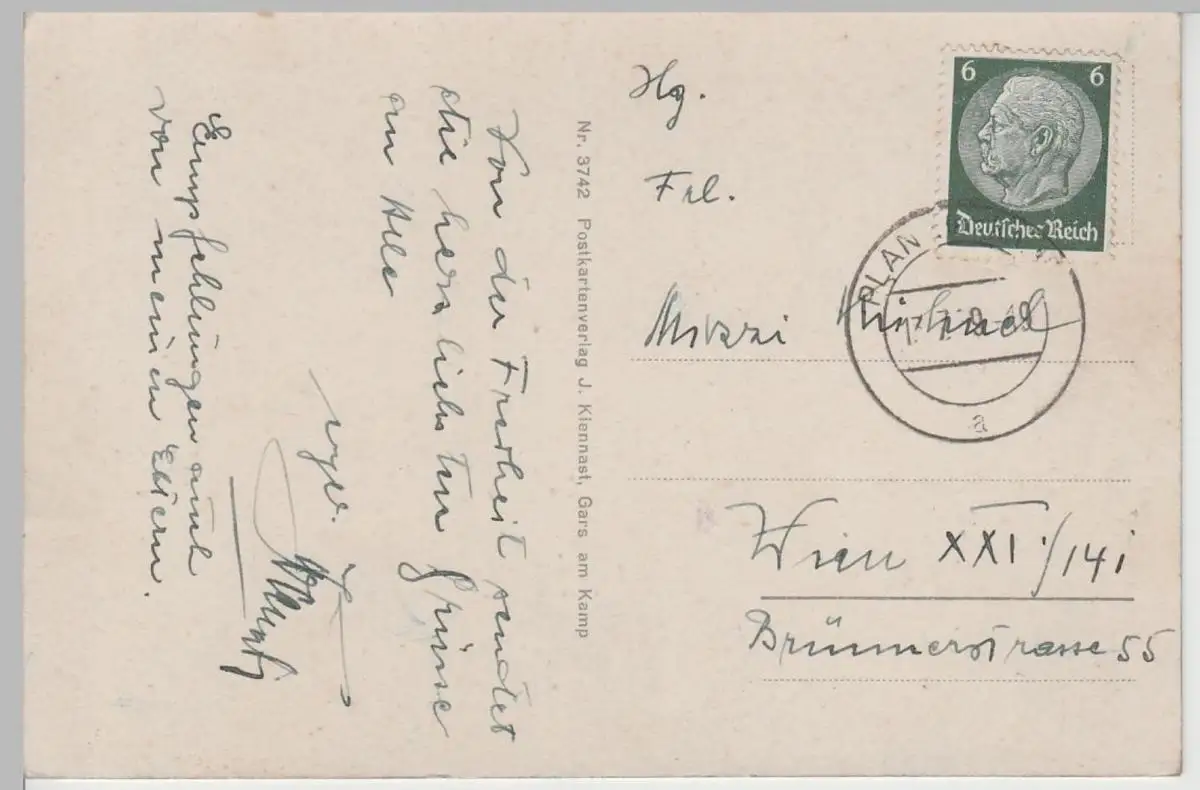 Von der Freiheit sendet
die herzlichsten Grüsse
an Alle
Empfehlungen auch
von meinen Eltern.
Nr. 3742 Postkartenverlag J. Kiennast, Gars am Kamp
6 6
Deutsches Reich
PLAN
a
Hg.
Frl.
Mizzi
Wien XXI./141
Brünnerstrasse 55